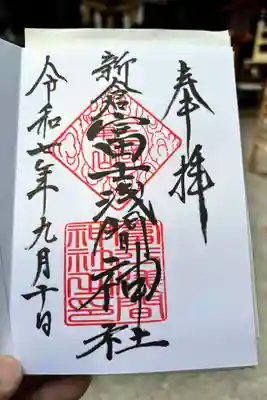 奉拝
新倉富士浅間神社
令和七年九月十日